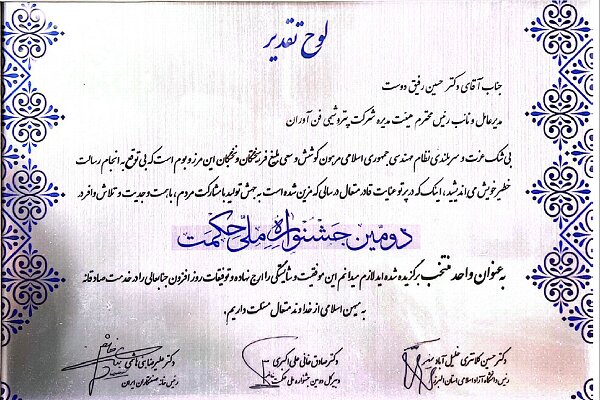 لوح تقدیر
جناب آقای دکتر حسین رفیق دوست
مدیرعامل و نائب رئیس محترم هیئت مدیره شرکت پتروشیمی فن آوران
بی شک عزت و سربلندی نظام مهندسی جمهوری اسلامی مرهون کوشش و سعی بلیغ فرهیختگان و نخبگان این مرز و بوم است که بی توقع به انجام رسالت
خطیر خویش می اندیشند، اینک که در پرتو عنایت قادر متعال در سالی که مزین شده است به جهش تولید با مشارکت مردم، با همت و جدیت و تلاش وافر در
دومین جشنواره ملی حکمت
به عنوان واحد منتخب برگزیده شده اید لازم میدانم این موفقیت و شایستگی را ارج نهاده و توفیقات روز افزون جنابعالی را در خدمت صادقانه
به میهن اسلامی از خداوند متعال مسئلت داریم.
دکتر حسین کلانتری خلیل آباد
رئیس دانشگاه آزاد اسلامی استان البرز
دکتر صادق خانی علی اکبری
دبیر کل دومین جشنواره ملی حکمت
دکتر علیرضا بنی هاشمی
رئیس خانه صنعتگران ایران